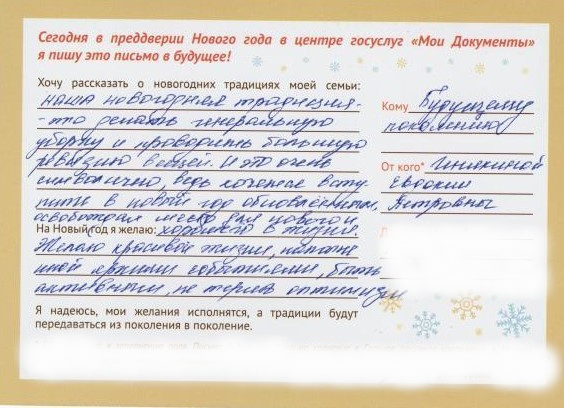 Сегодня в преддверии Нового года в центре госуслуг «Мои Документы»
я пишу это письмо в будущее!
Хочу рассказать о новогодних традициях моей семьи:
наша новогодняя традиция -
-то делать генеральную
уборку и проводить большую
ревизию вещей. И это очень
символично, ведь хочется всту-
пить в новый год обновлённым,
освобождая место для нового и
На Новый год я желаю: хорошего в жизни.
Желаю красивой жизни, наполне
нной яркими событиями, быть
активными, не теряя оптимизм
Я надеюсь, мои желания исполнятся, а традиции будут
передаваться из поколения в поколение.
Кому Будущему
поколению
От кого*
Евдокии
Петровны